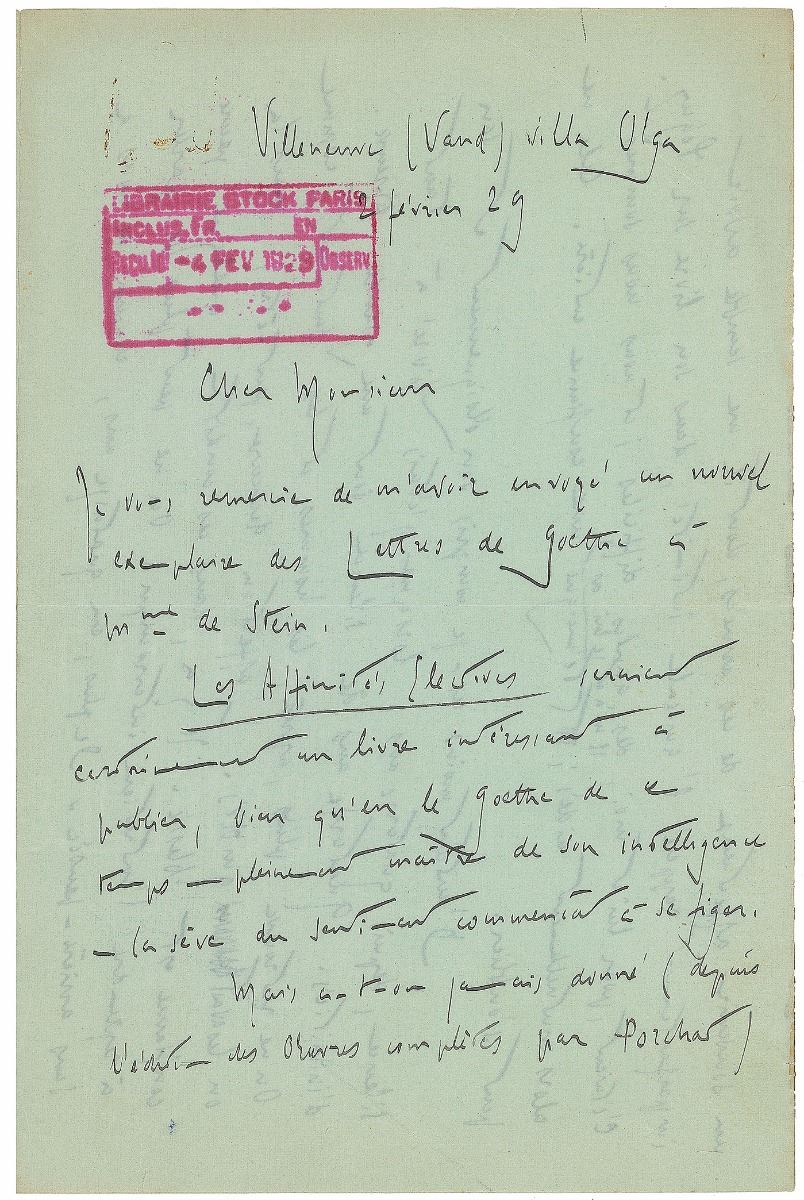 Villeneuve (Vaud) villa Olga
2 février 29
LIBRAIRIE STOCK PARIS
INCLUS. FR. EN
-4 FEV 1929 OBSERV
Cher Monsieur
Je vous remercie de m'avoir envoyé un nouvel
exemplaire des Lettres de Goethe à
Mme de Stein.
Les Affinités Electives seraient
certainement un livre intéressant à
publier, bien qu'en le Goethe de ce
temps – pleinement maître de son intelligence
– la sève du sentiment commençât à se figer.
Mais a-t-on jamais donné (depuis
l'édition des Œuvres complètes par Porchat)